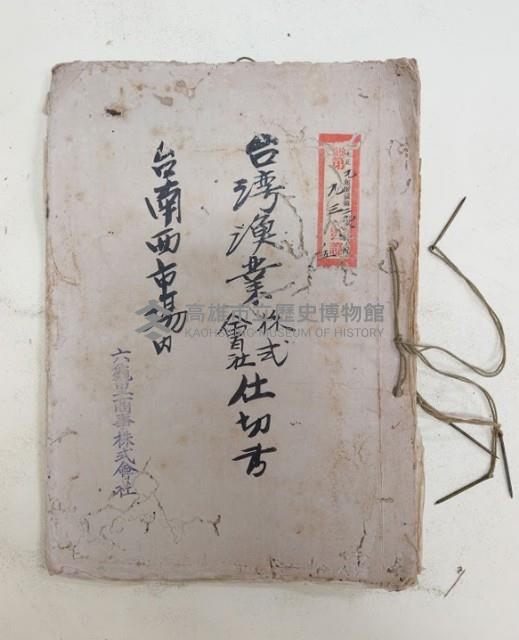 台湾漁業株式會社仕切書
台南西市場
六龜里商事株式會社
高雄市立歷史博物館
KAOHSIUNG MUSEUM OF HISTORY